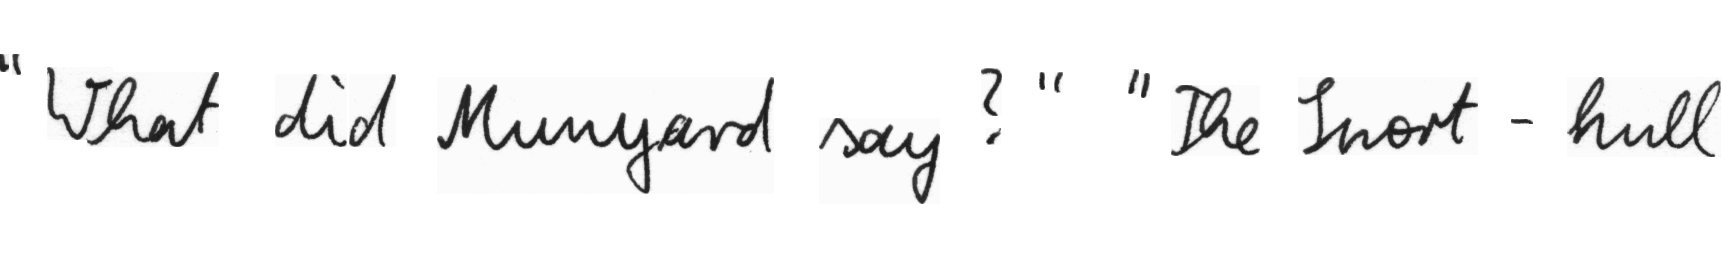 "What did Munyard say?" "The Snort-hull